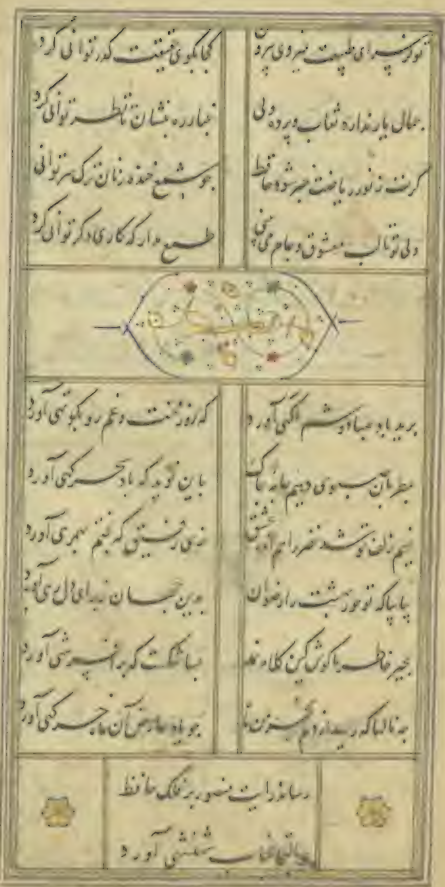 تو کز سرای طبیعت نمیروی برون کجا بکوی حقیقت گذر توانی کرد
جمال یار ندارد نقاب و پرده ولی غبار ره بنشان تا نظر توانی کرد
گرت ز نور ریاضت خبر شود حافظ چو شمع خنده زنان ترک سر توانی
ولی تو تا لب معشوق و جام می طمع مدار که کاری دگر توانی کرد
برید باد صبا دوشم آگهی آورد که روز محنت و غم رو بکوتهی آورد
مطربان صبوحی دهیم جامه چاک باین نوید که باد سحرگهی آورد
نسیم زلف تو شد خضر راهم اندر عشق زهی رفیق که بختم بهمرهی آورد
بیا بیا که تو حور بهشت را رضوان بدین جهان ز برای دل رهی آورد
بجبر خاطر ما کوش کین کلاه نمد بسا شکست که بر افسر شهی آورد
چه نالها که رسید از دلم بخرمن ماه چو یاد عارض آن ماه خرگهی آورد
رساند رایت منصور بر فلک حافظ
که التجا بجناب شهنشهی آورد